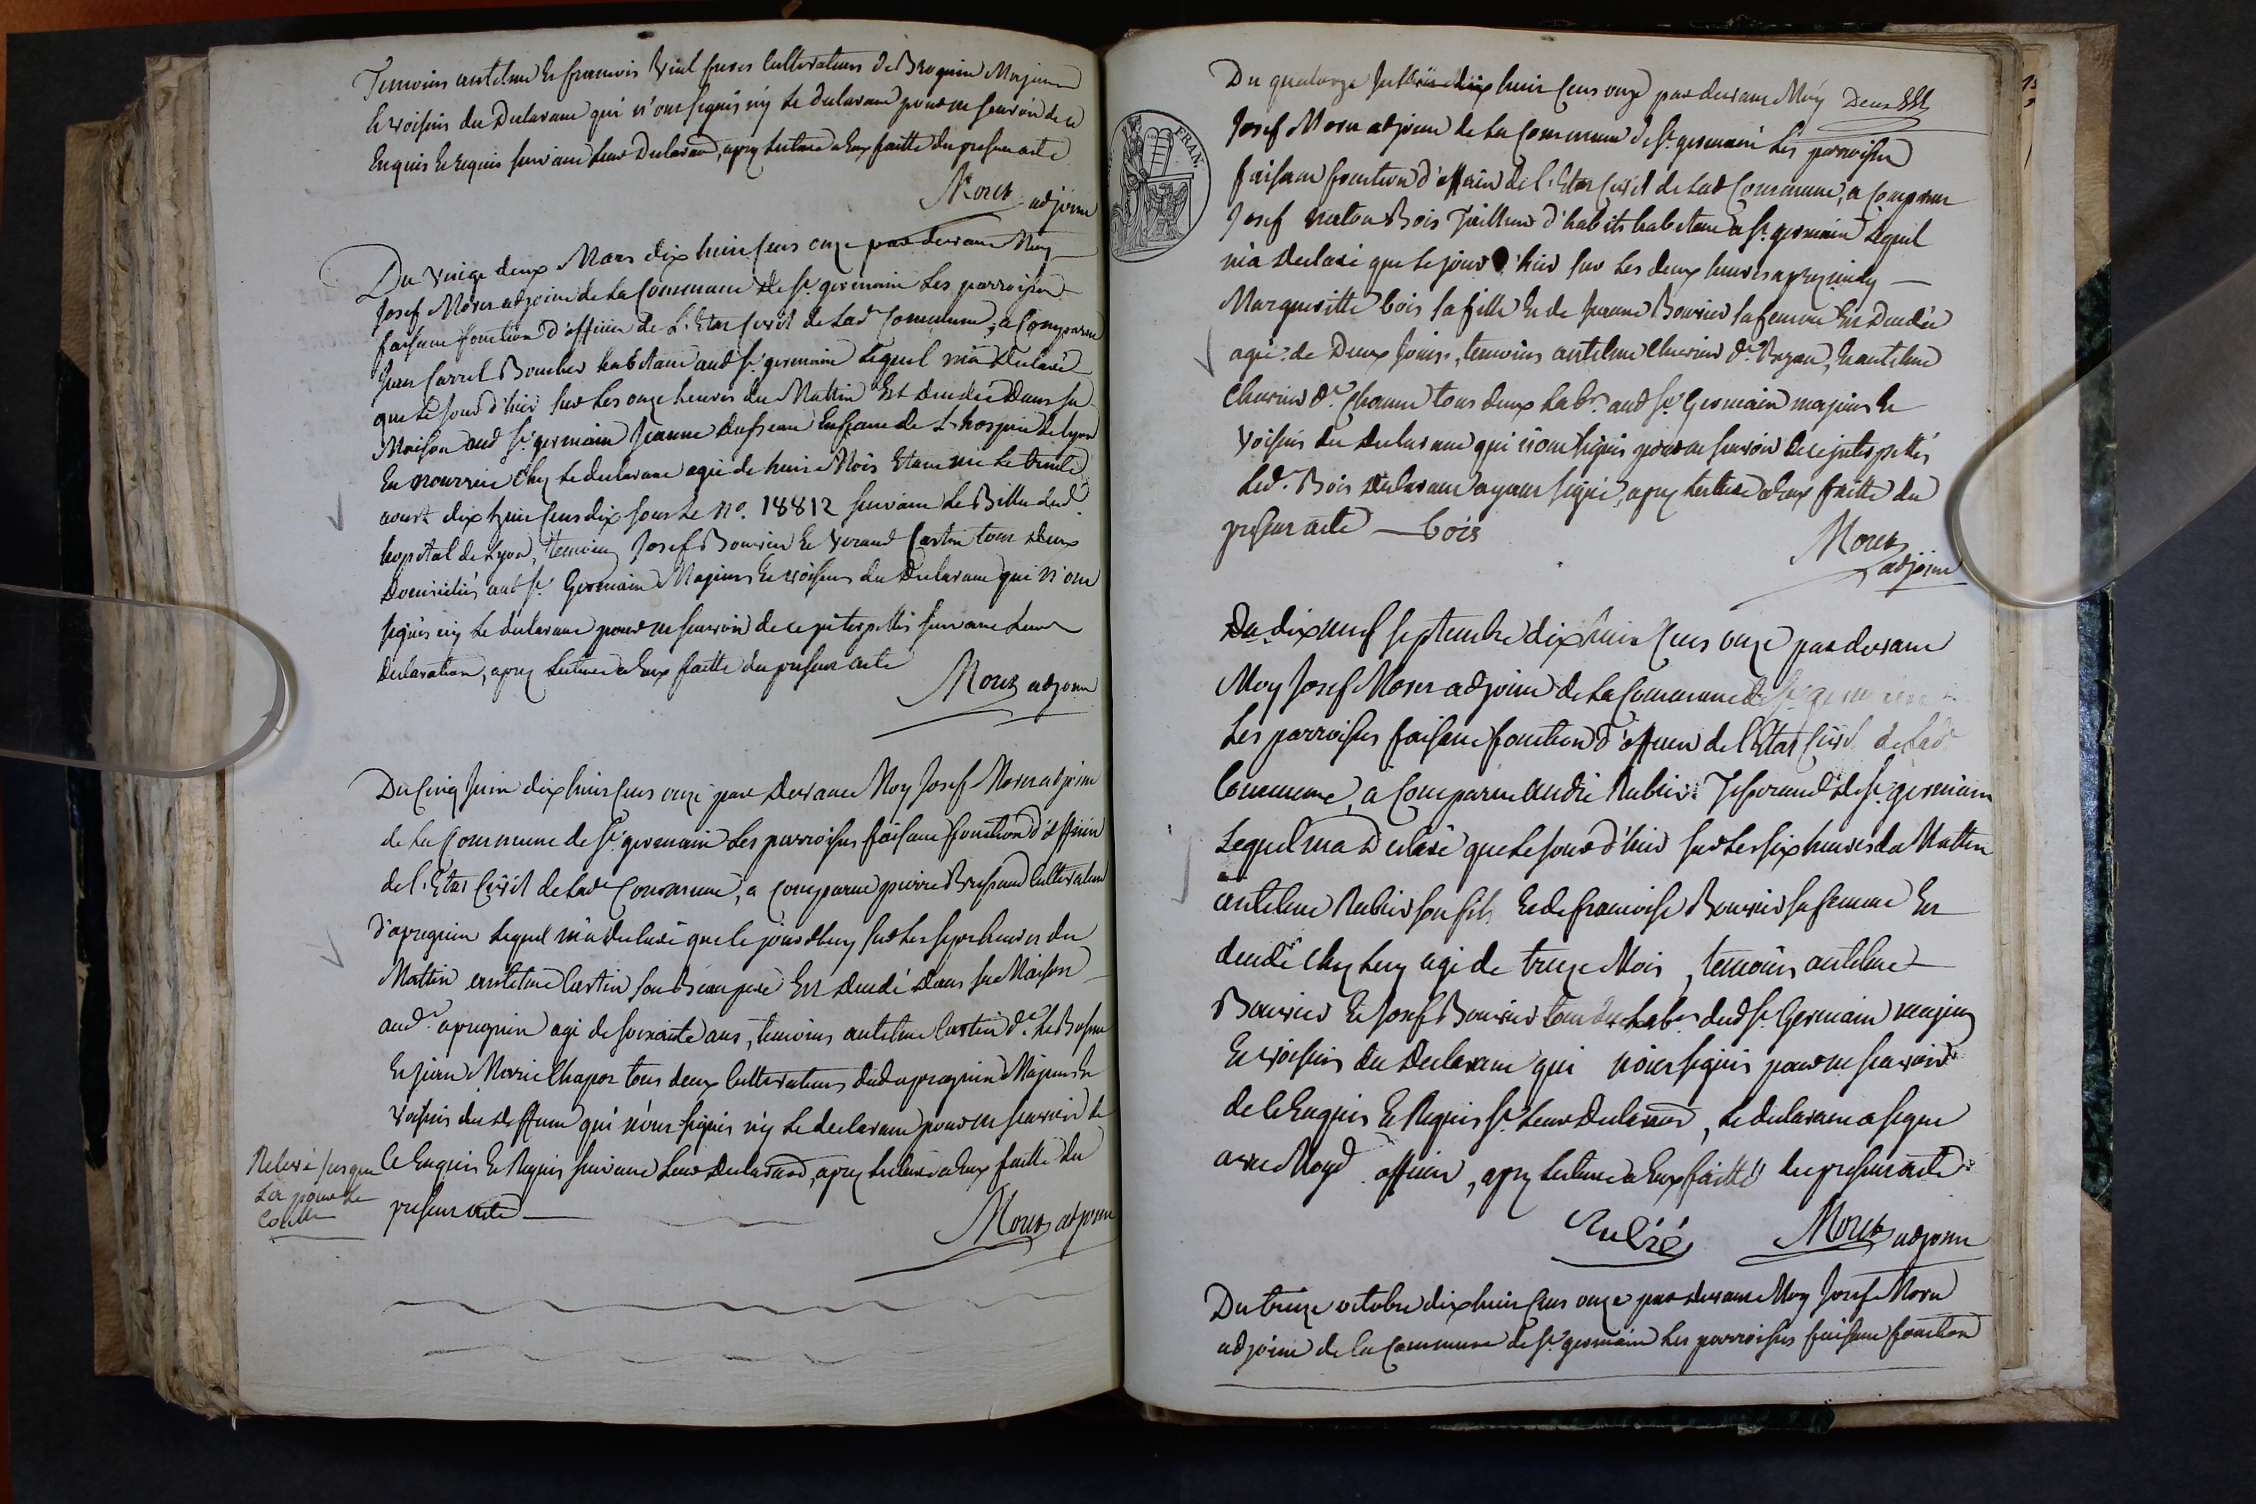 Temoins antelme Et francois Vial freres Cultivateurs de Brognin Majeurs
Et voisins du Declarant qui n'ont signés n'y le declarant pour ne scavoir de ce
Enquis Et requis suivant leur Declarand, aprez lecture a Eux faitte du present acte
Moret adjoint
Du Vingt deux Mars dix huit cens onze par devant Moy
Josef Moret adjoint de la Commune de St. germain Les parroisses
faisant fonction d'officier de L'Etat Civil de lade Commune, a Comparu
Jean Carrel Boucher habitant aud St. germain Lequel m'a Declaré
que le jour d'hier sur les onze heures du Mattin Est decedée Dans sa
Maison aud St. germain Jeanne Enfant de L'hospice de Lyon
En nourrice chez le declarant agée de huit Mois Etant née le trente
aoust dix huit cens dix sous le No. 18812 suivant le Billet dud.
hopital de Lyon, temoins Josef Bouvier Et Verand Castin tous Deux
Domiciliés aud St. Germain Majeurs Et voisins du Declarant qui n'ont
signés n'y le declarant pour ne scavoir de ce interpellés suivant leur
Declaration, aprez lecture a Eux faitte du present acte
Moret adjoint
Du Cinq Juin dix huit cens onze par Devant Moy Josef Moret adjoint
de la Commune de St. germain Les parroisses faisant fonction d'officier
de l'Etat Civil de lade Commune, a comparu pierre Cultivateur
d'apregnin Lequel m'a declaré que le jourdhuy sur les sept heures du
Mattin antelme Castin son Beau pere Est decedé Dans sa Maison
aud. apregnin agé de soixante ans, temoins antelme Castin dt
Et jean Marie Chapot tous deux Cultivateurs dud apregnin Majeurs Et
voisins du deffunt qui n'ont signés n'y le declarant pour ne scavoir de
Ce Enquis Et Requis suivant leur Declarand, aprez lecture a Eux faitte du
present acte
Moret adjoint
Relevé jusque
La pour le
Du quatorze Juillet dix huit cens onze par devant Moy
Josef Moret adjoint de la Commune de St. germain Les parroisses
faisant fonction d'officier de l'Etat Civil de lad Commune, a Comparu
Josef Bois Tailleur d'habits habitant a St. germain lequel
m'a Declaré que le jour d'hier sur les deux heures aprez midy
Margueritte bois sa fille Et de Jeanne Bouvier sa femme Est Decedée
agée de Deux jours, temoins antelme Chevrier dt. Et antelme
Chevrier dt. tous deux Labrs. aud St. Germain majeurs Et
voisins du declarant qui n'ont signés pour ne scavoir de ce interpellés
Led. Bois declarant ayant signé, aprez lecture a Eux faitte du
present acte bois
Moret
adjoint
FRAN.
Du dix neuf septembre dix huit cens onze par devant
Moy Josef Moret adjoint de la Commune de St. germain
Les parroisses faisant fonction d'officier de l'Etat Civil de lade
Commune, a Comparu andré Rubier Tisserand de St. germain
Lequel m'a Declaré que le jour d'hier sur les six heures du Mattin
antelme Rubier son fils Et de francoise Bouvier sa femme Est
decedé chez luy agé de treize Mois, temoins antelme
Bouvier Et Josef Bouvier tous deux Labrs dud St. Germain majeurs
Et voisins du Declarant qui n'ont signés pour ne scavoir
de ce Enquis Et Requis St. leur Declarand, Le declarant a signé
avec Moyd. officier, aprez lecture a Eux faitte du present acte
Rubié Moret adjoint
Du treize octobre dix huit cens onze par devant Moy Josef Moret
adjoint de la Commune de St. germain Les parroisses faisant fonction